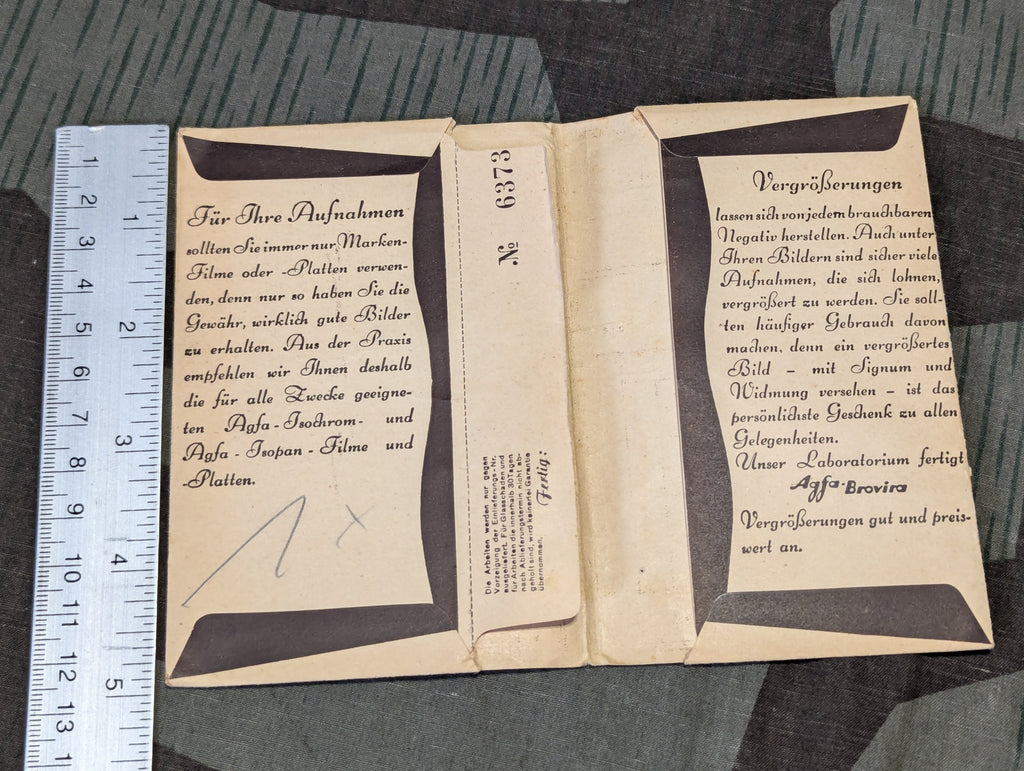 Für Ihre Aufnahmen
sollten Sie immer nur Marken-
Filme oder -Platten verwen-
den, denn nur so haben Sie die
Gewähr, wirklich gute Bilder
zu erhalten. Aus der Praxis
empfehlen wir Ihnen deshalb
die für alle Zwecke geeigne-
ten Agfa-Isochrom- und
Agfa-Isopan-Filme und
-Platten.
1 x
№ 6373
Die Arbeiten werden nur gegen
Vorzeigung der Einlieferungs-Nr.
ausgeliefert. Für Glasschäden und
für Arbeiten die innerhalb 30 Tagen
nach Ablieferungstermin nicht ab-
geholt sind, wird keinerlei Garantie
übernommen.
Fertig:
Vergrößerungen
lassen sich von jedem brauchbaren
Negativ herstellen. Auch unter
Ihren Bildern sind sicher viele
Aufnahmen, die sich lohnen,
vergrößert zu werden. Sie soll-
ten häufiger Gebrauch davon
machen, denn ein vergrößertes
Bild – mit Signum und
Widmung versehen – ist das
persönlichste Geschenk zu allen
Gelegenheiten.
Unser Laboratorium fertigt
Agfa-Brovira
Vergrößerungen gut und preis-
wert an.
1 2 3 4 5 6 7 8 9 10 11 12 13 1
1 2 3 4 5